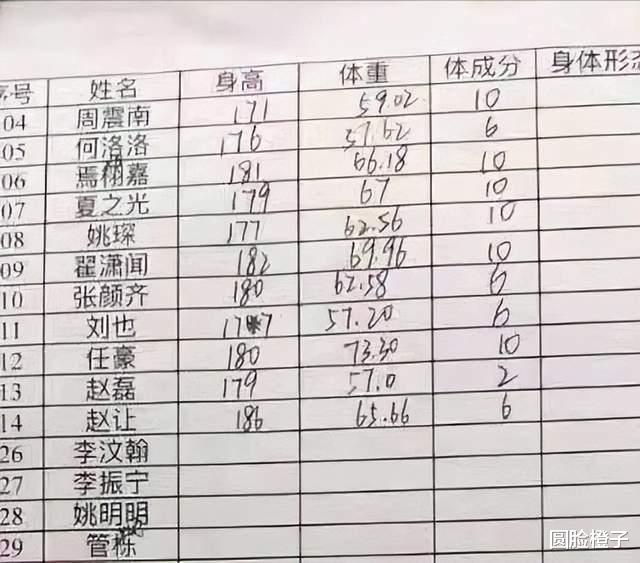 序号 姓名 身高 体重 体成分 身体形态
04 周震南 171 59.02 10
05 何洛洛 176 57.62 6
06 焉栩嘉 181 66.18 10
07 夏之光 179 67 10
08 姚琛 177 62.56 10
09 翟潇闻 182 69.96 10
10 张颜齐 180 62.58 6
11 刘也 177 57.20 6
12 任豪 180 73.30 10
13 赵磊 179 57.0 2
14 赵让 186 65.66 6
26 李汶翰
27 李振宁
28 姚明明
29 管栎
圆脸橙子